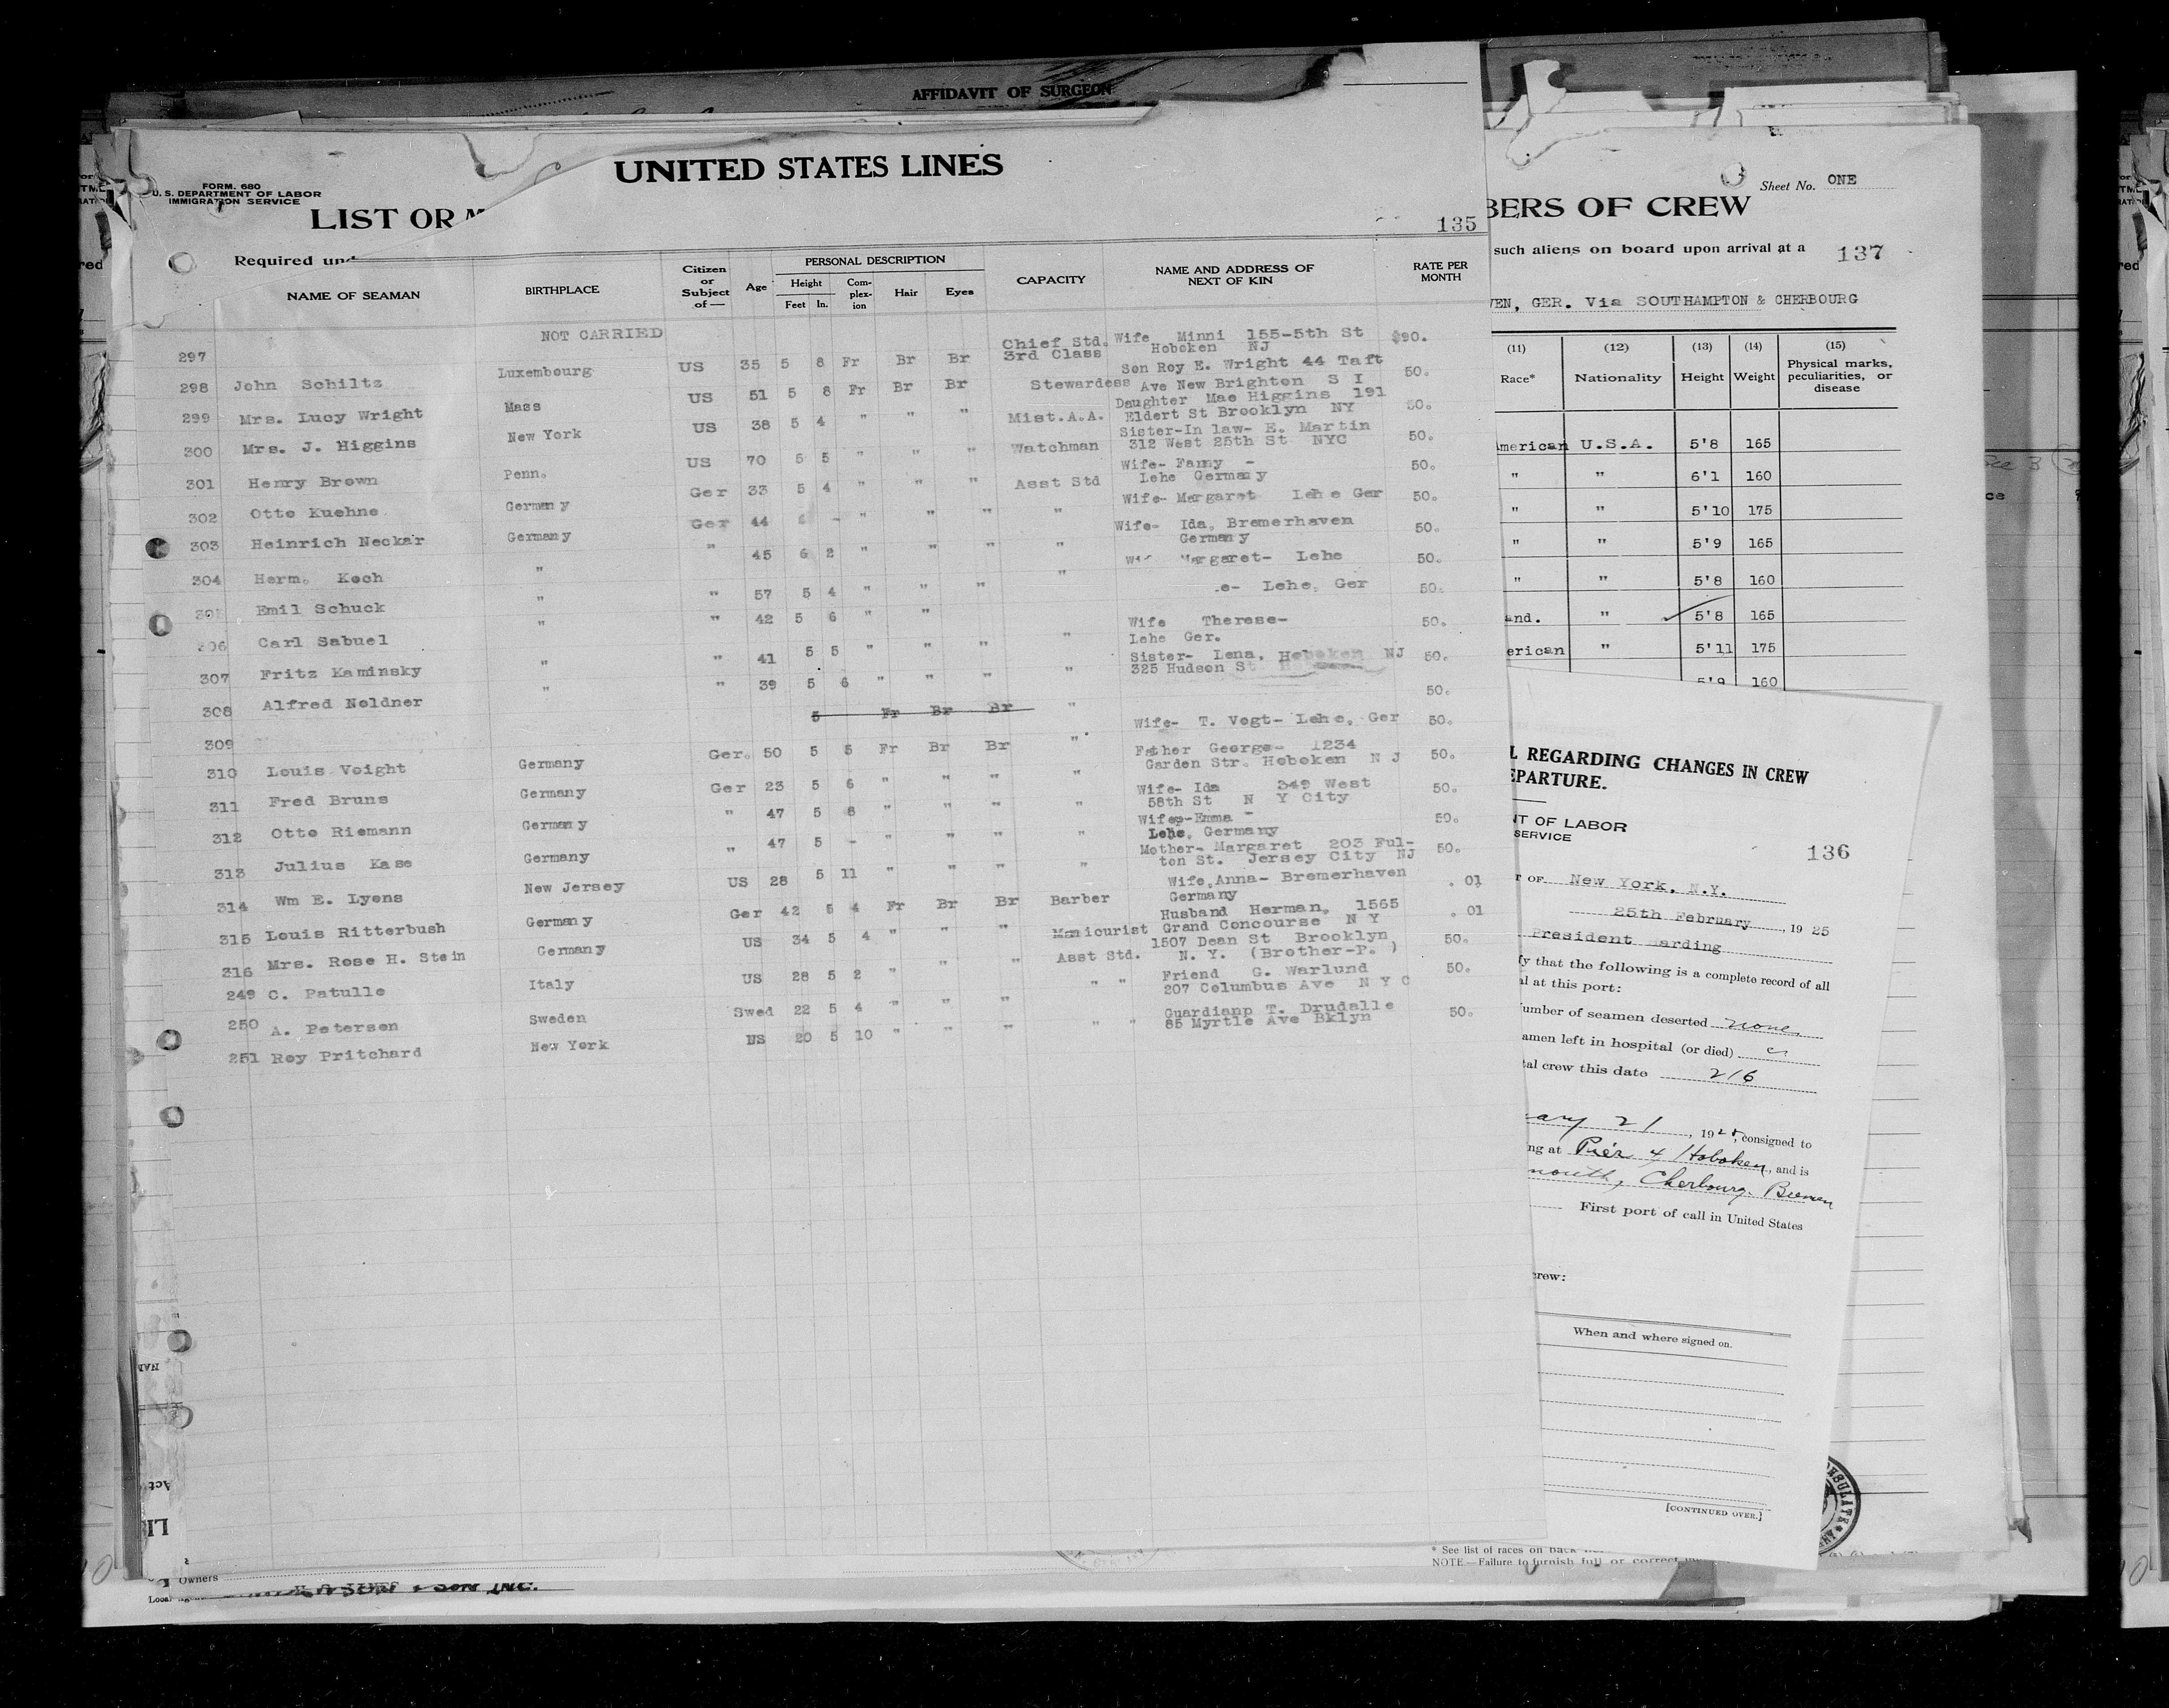 AFFIDAVIT OF SURGEON
UNITED STATES LINES
FORM. 680
U. S. DEPARTMENT OF LABOR
IMMIGRATION SERVICE
LIST OR
135
Required
NAME OF SEAMAN BIRTHPLACE Citizen or Subject of — Age PERSONAL DESCRIPTION Height Feet In. Com-plex-ion Hair Eyes CAPACITY NAME AND ADDRESS OF NEXT OF KIN RATE PER MONTH
297 NOT CARRIED
298 John Schiltz Luxembourg US 35 5 8 Fr Br Br Chief Std. 3rd Class Wife Minni 155-5th St Hoboken NJ $90.
299 Mrs. Lucy Wright Mass US 51 5 8 Fr Br Br Stewardess Son Roy E. Wright 44 Taft Ave New Brighton S I 50.
300 Mrs. J. Higgins New York US 38 5 4 " " " Mist.A.A. Daughter Mae Higgins 191 Eldert St Brooklyn NY 50.
301 Henry Brown Penn. US 70 5 5 " " " Watchman Sister-In law- E. Martin 312 West 25th St NYC 50.
302 Otto Kuehne Germany Ger 33 5 4 " " " Asst Std Wife- Fanny - Lehe Germany 50.
303 Heinrich Neckar Germany Ger 44 - " " " " Wife- Margaret Lehe Ger 50.
304 Herm. Koch " " 45 6 2 " " " " Wife- Ida, Bremerhaven Germany 50.
Emil Schuck " " 57 5 4 " " " " Margaret- Lehe 50.
306 Carl Sabuel " " 42 5 6 " " Lehe, Ger 50.
307 Fritz Kaminsky " " 41 5 5 " " " " Wife Therese- Lehe Ger. 50.
308 Alfred Noldner " " 39 5 6 " " " " Sister- Lena, Hoboken NJ 325 Hudson St 50.
309 5 Fr Br Br " 50.
310 Louis Voight Germany Ger. 50 5 5 Fr Br Br " Wife- T. Vogt- Lehe, Ger 50.
311 Fred Bruns Germany Ger 23 5 6 " " " " Father George- 1234 Garden Str. Hoboken N J 50.
312 Otto Riemann Germany " 47 5 8 " " " " Wife- Ida 349 West 58th St N Y City 50.
313 Julius Kase Germany " 47 5 - " " " " Wife-Emma - Lehe, Germany 50.
314 Wm E. Lyons New Jersey US 28 5 11 " " " " Mother- Margaret 203 Ful-ton St. Jersey City NJ 50.
315 Louis Ritterbush Germany Ger 42 5 4 Fr Br Br Barber Wife,Anna- Bremerhaven Germany .01
316 Mrs. Rose H. Stein Germany US 34 5 4 " " " Manicurist Husband Herman, 1565 Grand Concourse N Y .01
249 C. Patullo Italy US 28 5 2 " " " Asst Std. 1507 Dean St Brooklyn N. Y. (Brother-P. ) 50.
250 A. Petersen Sweden Swed 22 5 4 " " " " " Friend G. Warlund 207 Columbus Ave N Y C 50.
251 Roy Pritchard New York US 20 5 10 " " " " " Guardianp T. Drudalle 85 Myrtle Ave Bklyn 50.
Owners
Sheet No. ONE
BERS OF CREW
such aliens on board upon arrival at a 137
VEN, GER. Via SOUTHAMPTON & CHERBOURG
(11) (12) (13) (14) (15)
Race* Nationality Height Weight Physical marks, peculiarities, or disease
merican U.S.A. 5'8 165
" " 6'1 160
" " 5'10 175
" " 5'9 165
" " 5'8 160
and. " 5'8 165
erican " 5'11 175
5'9 160
L REGARDING CHANGES IN CREW
EPARTURE.
NT OF LABOR
SERVICE
136
T OF New York, N.Y.
25th February, 1925
President Harding
fy that the following is a complete record of all
al at this port:
umber of seamen deserted none
amen left in hospital (or died)
tal crew this date 216
ary 21, 1925, consigned to
ng at Pier 4 Hoboken, and is
mouth, Cherbourg, Bremen
First port of call in United States
crew:
When and where signed on.
[CONTINUED OVER.]
* See list of races on back
NOTE.—Failure to furnish full or correct